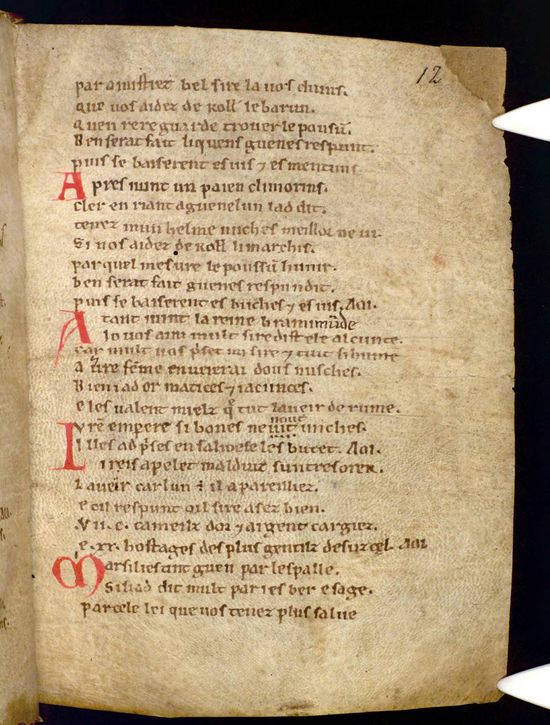 12
par amistiet bel sire la vos duins.
Que vos aidez de Roll̃ le barun.
Quen rereguarde trover le poüsũ.
Ben serat fait li quens guenes respunt.
puis se baiserent es vis ⁊ es mentuns
Apres iunt un paien climorins.
Cler en riant a guenelun lad dit.
tenez mun helme unches meillor ne vi.
Si nos aidez de Roll̃ li marchis.
par quel mesure le poüssũ hunir.
ben serat fait guenes respundit.
puis se baiserent es buches ⁊ es vis. AOI.
Atant iunt la reine bramimũde
Io vos aim mult sire dist ele al cunte.
Car mult vos p̃set mi sire ⁊ tuit si hume
A vr̃e fẽme enveierai dous nusches.
Bien i ad or matices ⁊ iacunces.
e les valent mielz q̃ tut laveir de rume.
Vr̃e empere si bones ne vit unches.
Il les ad p̃ses en sa hoese les butet. AOI.
Li reis apelet malduit sun tresorer.
Laveir carlun ẽ il apareilliez.
e cil respunt oil sire asez bien.
.VII. C. cameilz dor ⁊ argent cargiez.
e .XX. hostages des plus gentilz desuz cel. AOI
Marsilies tint guen par lespalle.
Si li ad dit mult par ies ber e sage.
par cele lei que vos tenez plus salve